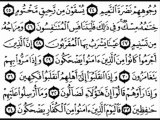 وُجُوهِهِمْ نَضْرَةَ ٱلنَّعِيمِ ٢٤ يُسْقَوْنَ مِن رَّحِيقٍ مَّخْتُومٍ ٢٥
خِتَـٰمُهُۥ مِسْكٌ وَفِى ذَٰلِكَ فَلْيَتَنَافَسِ ٱلْمُتَنَـٰفِسُونَ ٢٦ وَمِزَاجُهُۥ
مِن تَسْنِيمٍ ٢٧ عَيْنًا يَشْرَبُ بِهَا ٱلْمُقَرَّبُونَ ٢٨ إِنَّ ٱلَّذِينَ
أَجْرَمُوا۟ كَانُوا۟ مِنَ ٱلَّذِينَ ءَامَنُوا۟ يَضْحَكُونَ ٢٩ وَإِذَا مَرُّوا۟ بِهِمْ
يَتَغَامَزُونَ ٣٠ وَإِذَا ٱنقَلَبُوٓا۟ إِلَىٰٓ أَهْلِهِمُ ٱنقَلَبُوا۟ فَكِهِينَ ٣١
وَإِذَا رَأَوْهُمْ قَالُوٓا۟ إِنَّ هَـٰٓؤُلَآءِ لَضَآلُّونَ ٣٢ وَمَآ أُرْسِلُوا۟ عَلَيْهِمْ
حَـٰفِظِينَ ٣٣ فَٱلْيَوْمَ ٱلَّذِينَ ءَامَنُوا۟ مِنَ ٱلْكُفَّارِ يَضْحَكُونَ ٣٤